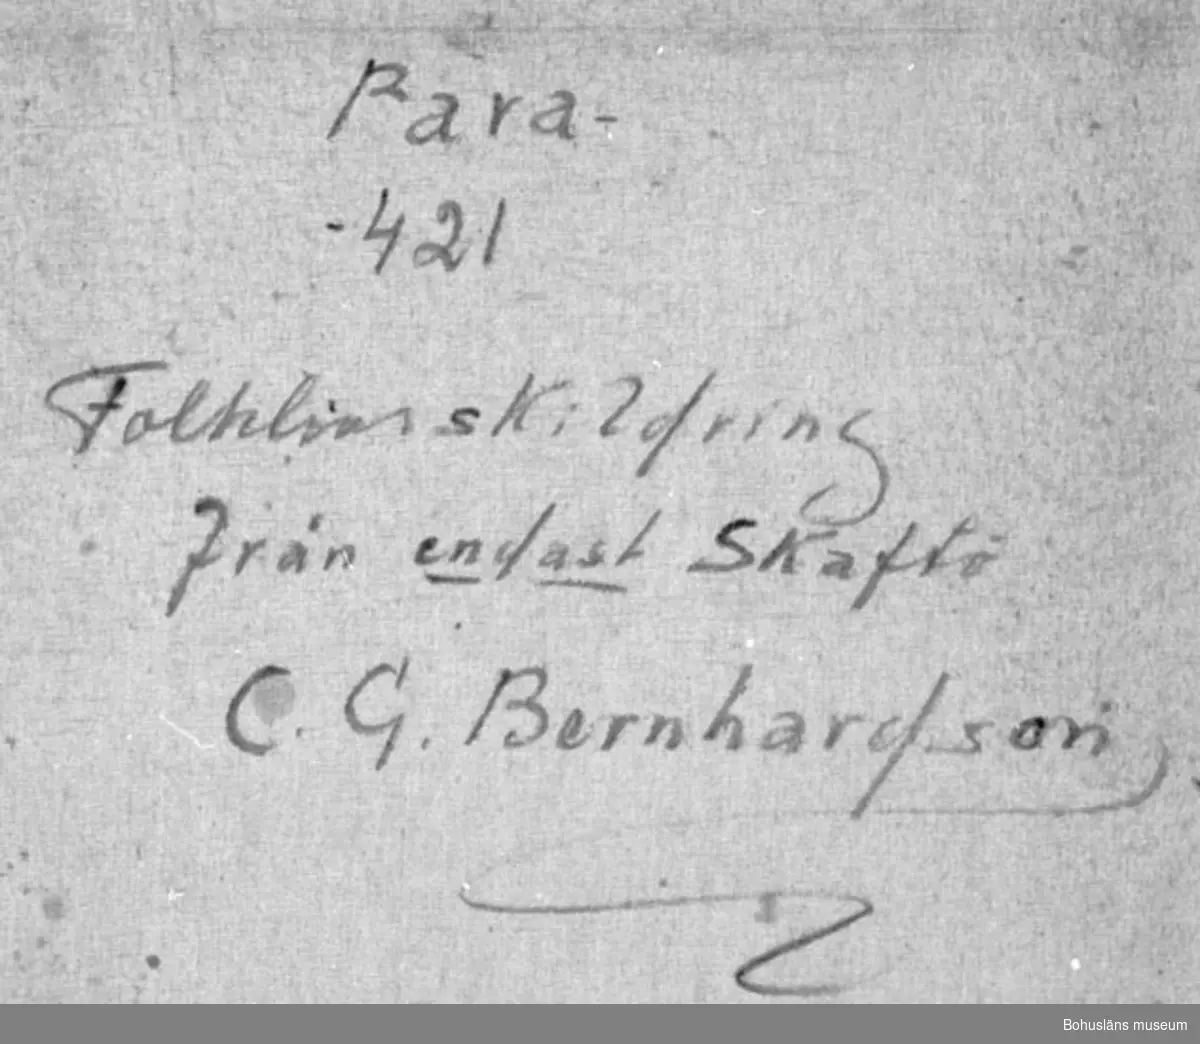 Para-
-421
Folklivsskildring
från endast Skaftö
C. G. Bernhardson
Bohusläns museum